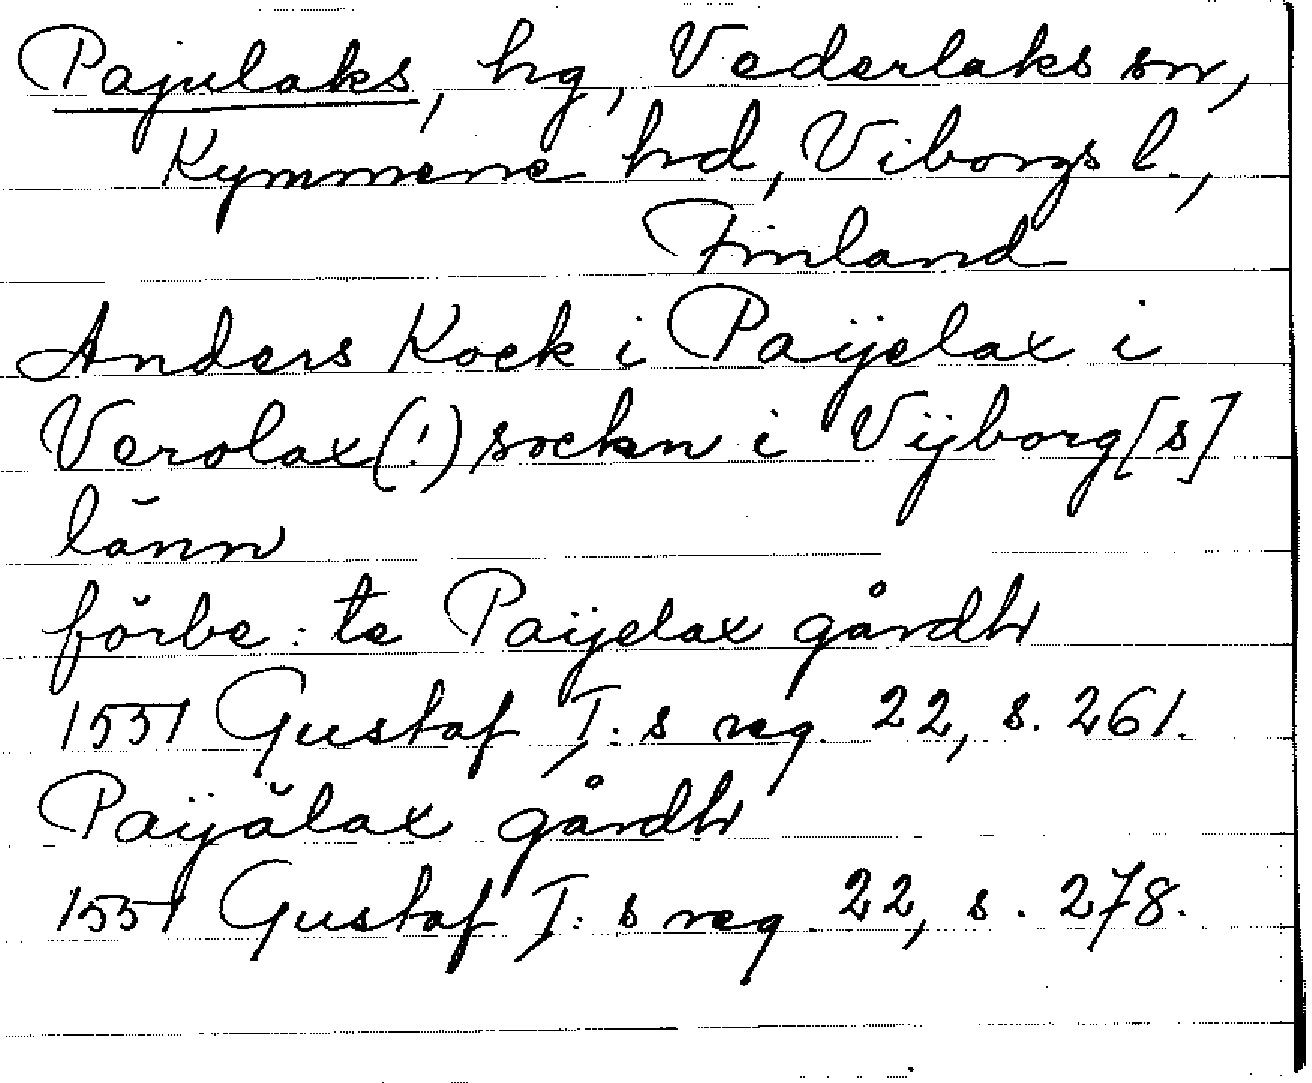 Pajulaks, hg, Vederlaks sn,
Kymmene hd, Viborgs l.,
Finland
Anders Kock i Paijelax i
Verolax(!) sockn i Vijborg[s]
länn
förbe: te Paijelax gårdh
1551 Gustaf I:s reg. 22, s. 261.
Paijälax gårdh
1551 Gustaf I:s reg. 22, s. 278.